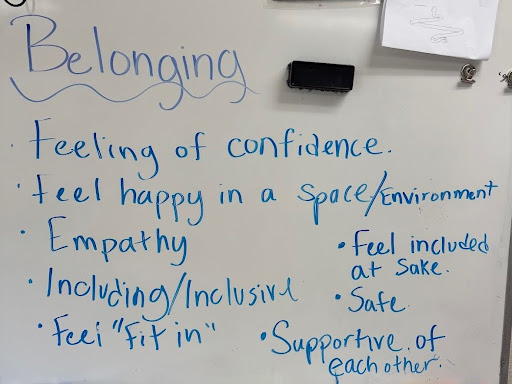 Belonging
· Feeling of confidence.
· Feel happy in a space/Environment
· Empathy
· Including/Inclusive
· Feel "Fit in"
· Feel included
at Sake.
· Safe
· Supportive of
each other.